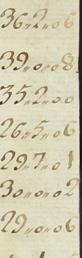 36,,2,,06
39,,0,,08
35,,2,,00
26,,5,,06
29,,7,,01
30,,0,,02
29,,0,,06